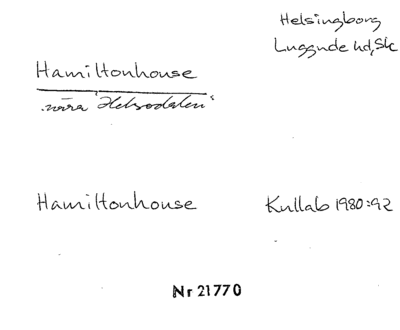 Helsingborg
Luggude hd, Sk
Hamiltonhouse
nära "Hälsodalen"
Hamiltonhouse
Kullab 1980:92
Nr 21770